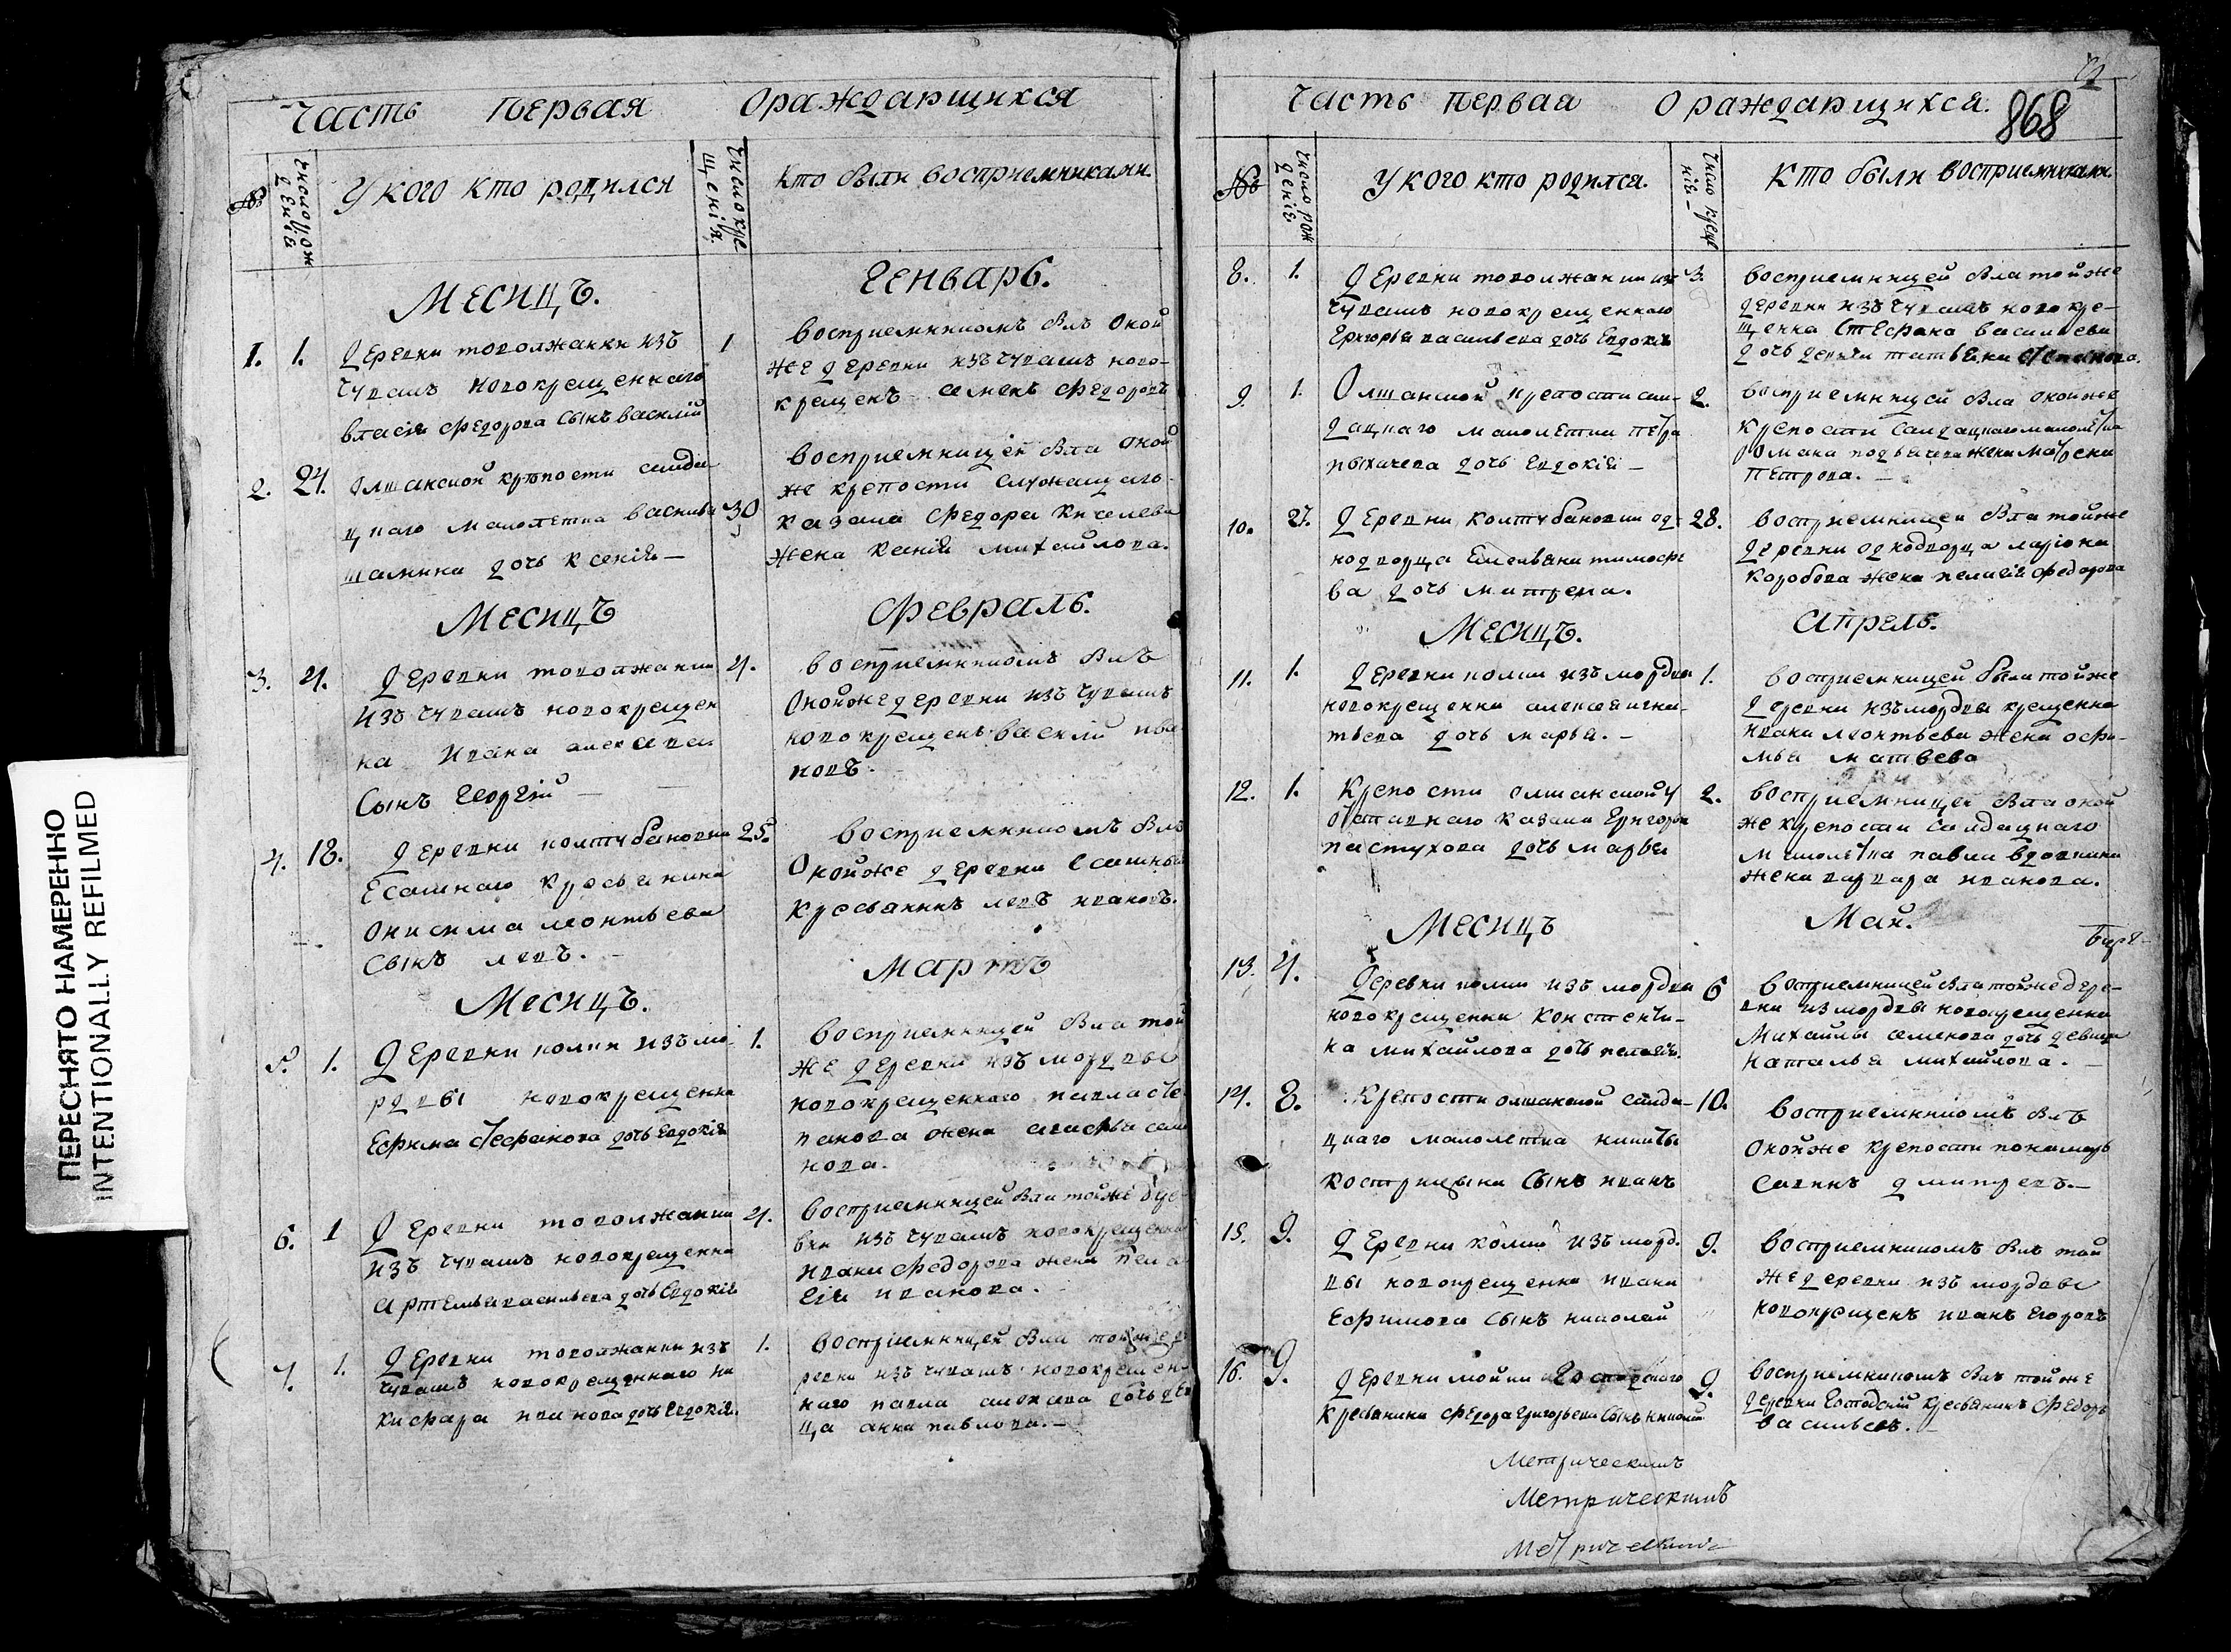 ПЕРЕСНЯТО НАМЕРЕННО
INTENTIONALLY REFILMED
Часть первая Ораждающихся
№
Число рож
деніѧ
У кого кто родился
Число кре
щеніѧ.
Кто были восприемниками
Месицъ.
Генварь.
1. 1. Деревни товолжанки изъ
чувашъ новокрещеннаго
власія федорова сынъ василій
1
восприемникомъ былъ оной
же деревни изъ чувашъ ново-
крещенъ семенъ федоровъ
2. 24.
олшанской крѣпости салда
цкаго малолетка василья
шамкина дочь ксенія —
30
восприемницей была оной
же крепости служащаго
казака федора киселева
жена ксенія михайлова.
Месицъ
Февраль.
3. 4. Деревни товолжанки
изъ чувашъ новокрещен
на ивана
сынъ георгій —
4.
восприемникомъ былъ
оной же деревни изъ чувашъ
новокрещенъ василій ива
новъ.
4. 18. Деревни колтубановки
Есашнаго кресьянина
онисима леонтьева
сынъ левъ. —
25.
восприемникомъ былъ
оной же деревни есашный
кресьянинъ левъ ивановъ.
Месицъ.
Мартъ
5. 1. Деревни колки изъ мо
рдвы новокрещенна
Ефима стефанова дочь Евдокія
1.
восприемницей была той
же деревни изъ мордвы
новокрещеннаго павла сте
панова жена агафья сем
нова.
6. 1 Деревни товолжанки
изъ чувашъ новокрещенна
артемья васильева дочь Евдокія
4.
восприемницей была той же дере
вни изъ чувашъ новокрещенна
ивана федорова жена пела
гія иванова.
7. 1. Деревни товолжанки изъ
чувашъ новокрещеннаго ни
кифара иванова дочь Евдокія.
1.
восприемницей была той же де
ревни изъ чувашъ новокрещен-
наго павла дочь деви
ца анна павлова. —
Часть первая Ораждающихся.
868
№
Число рож
деніѧ
У кого кто родился.
Число креще
ніѧ —
Кто были восприемниками
8. 1. Деревни товолжанки изъ
чувашъ новокрещеннаго
Григорья васильева дочь Евдокія
3.
восприемницей была той же
деревни изъ чувашъ новокре-
щенна стефана васильева
дочь девица татьяна степанова.
9. 1. Олшанской крепости сал-
дацкаго малолетка петра
пыхачева дочь Евдокія —
2.
восприемницей была оной же
крепости салдацкаго малолетка
романа жена матрена
петрова. —
10. 27. Деревни колтубановки од-
нодворца Емельяна тимофе
ва дочь матрена.
28.
восприемницей была той же
деревни однодворца лариона
коробова жена пелагія федорова
Месицъ.
Апрель.
11. 1. Деревни колки изъ мордвы
новокрещенна алексея игна-
тьева дочь марья. —
1.
восприемницей была той же
деревни изъ мордвы крещенна
ивана леонтьева жена офи-
мья матвева
12. 1. Крепости олшанской у
отставнаго казака Григорья
пастухова дочь марья
2.
восприемницей была оной
же крепости салдацкаго
малолетка павла вдовкина
жена варвара иванова.
Месицъ
Май.
13. 4. Деревни колки изъ мордвы
новокрещенна константи-
на михайлова дочь пелагія.
6
восприемницей была той же дере-
вни из мордвы новокрещенна
Михайлы семенова дочь девица
наталья михайлова. —
14. 8. Крепости олшанской салда-
цкаго малолетка никиты
кострицына сынъ иванъ
10.
восприемникомъ былъ
оной же крепости пономарь
савинъ дмитревъ. —
15. 9. Деревни колки изъ морд.
вы новокрещенна ивана
Ефимова сынъ николай
9.
восприемникомъ былъ той
же деревни изъ мордвы
новокрещенъ иванъ Егоровъ
16. 9. Деревни мойки Господского
кресьянина федора григорьева сынъ николай
9.
восприемникомъ былъ той же
деревни Господскій кресьянинъ федоръ
васильевъ. —
Метрическимъ
Метрическимъ